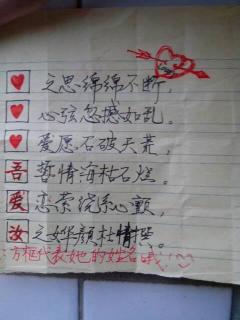 ♥之思绵绵不断，
♥心弦忽撼如乱。
♥爱愿石破天荒，
吾誓情海枯石烂。
爱恋萦绕系心颤，
汝之娇颜杜情拦。
方框代表她的姓名哦！